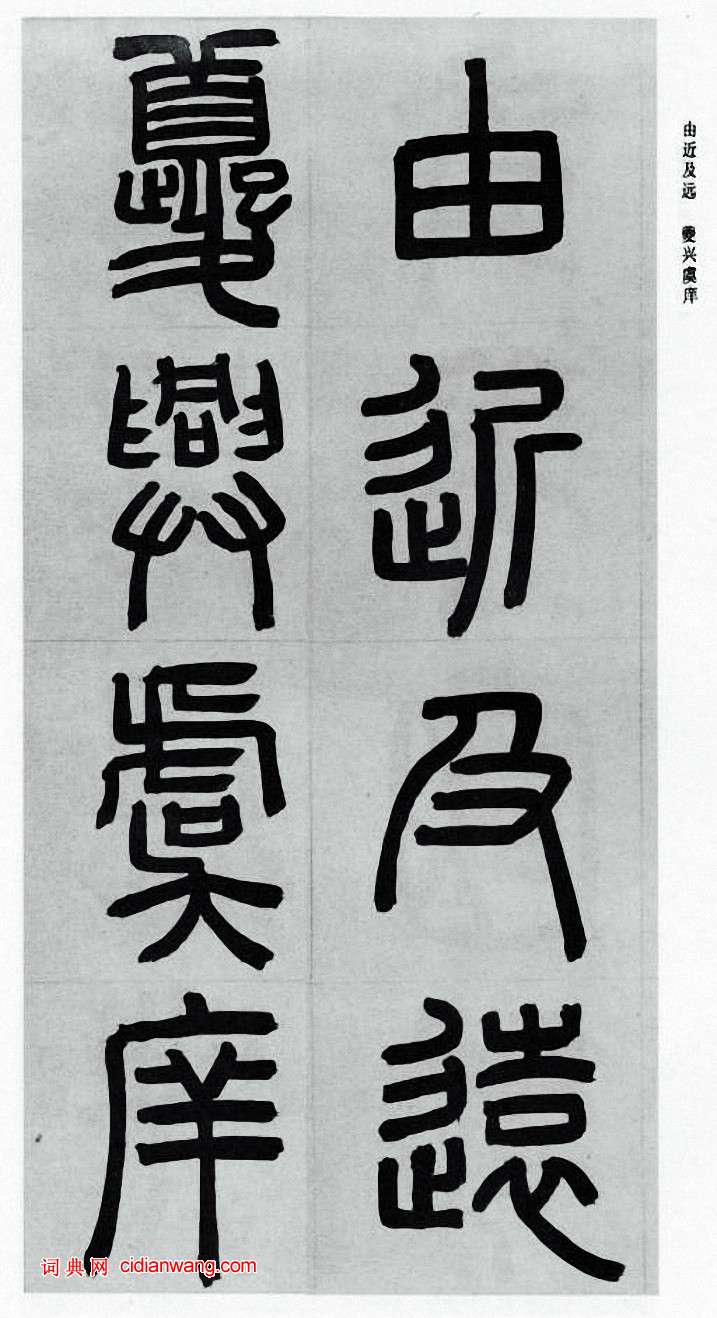 由近及遠
夔興虞庠
由近及远 夔兴虞庠
词典网 cidianwang.com